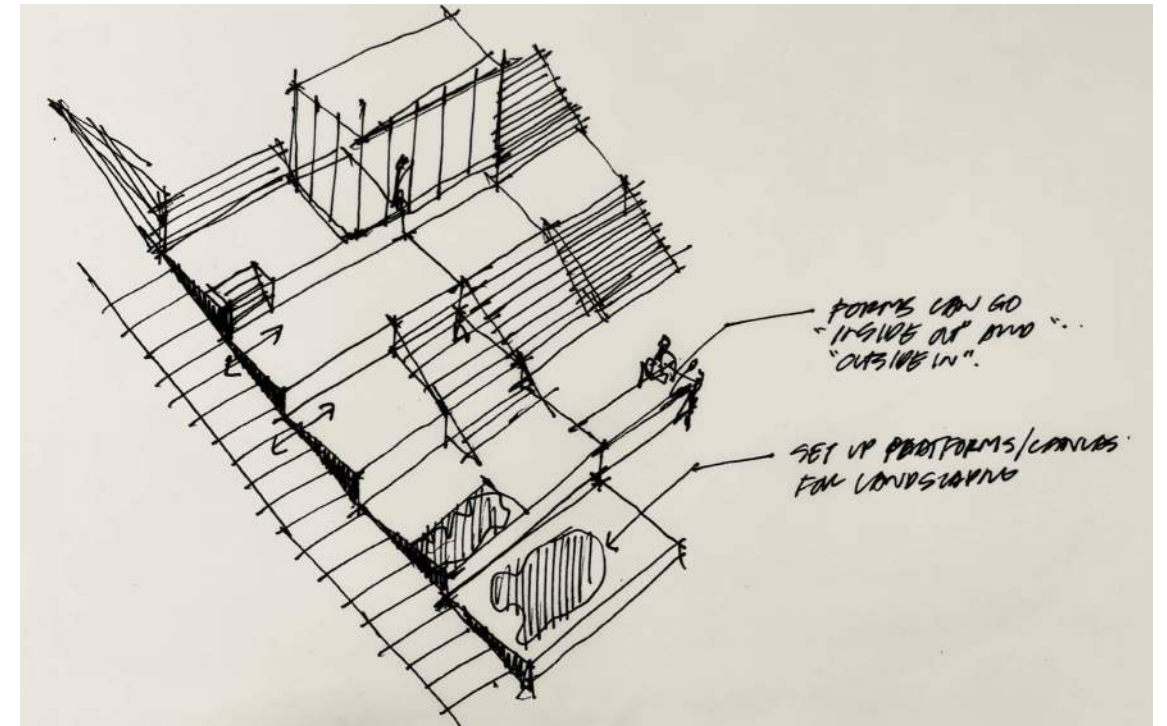 FORMS CAN GO
"INSIDE OUT" AND
"OUTSIDE IN".
SET UP PLATFORMS/CANVAS
FOR LANDSCAPING